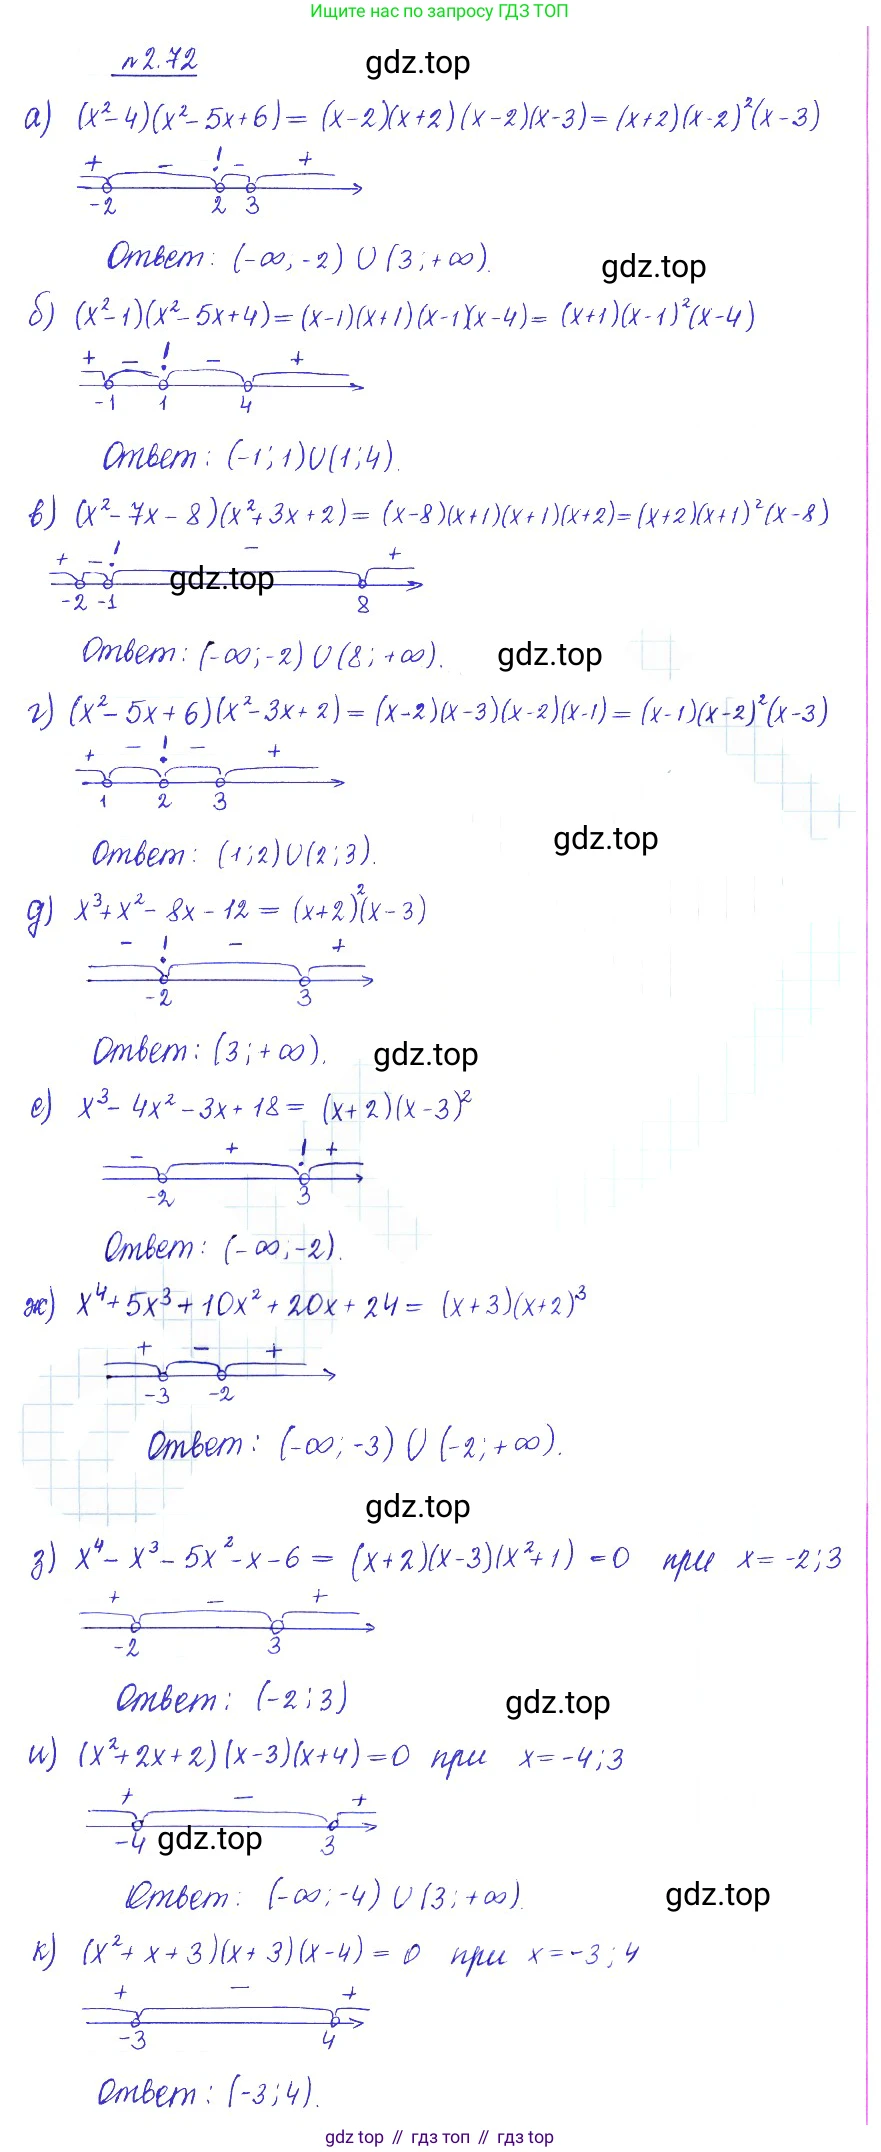 Ищите нас по запросу ГДЗ ТОП
n 2.72 gdz.top
а) (x²-4)(x²-5x+6)= (x-2)(x+2)(x-2)(x-3)= (x+2)(x-2)²(x-3)
+ - ! - +
-2 2 3
Ответ: (-∞,-2) U (3;+∞).
gdz.top
б) (x²-1)(x²-5x+4)= (x-1)(x+1)(x-1)(x-4)= (x+1)(x-1)²(x-4)
+ - ! - +
-1 1 4
Ответ: (-1;1)U(1;4).
в) (x²-7x-8)(x²+3x+2)= (x-8)(x+1)(x+1)(x+2)= (x+2)(x+1)²(x-8)
+ - ! - +
gdz.top
-2 -1 8
Ответ: (-∞;-2) U (8; +∞). gdz.top
г) (x²-5x+6)(x²-3x+2)= (x-2)(x-3)(x-2)(x-1)= (x-1)(x-2)²(x-3)
+ - ! - +
1 2 3
gdz.top
Ответ: (1;2)U(2;3).
д) x³+x²-8x-12= (x+2)²(x-3)
- ! - +
-2 3
Ответ: (3;+∞). gdz.top
е) x³-4x²-3x+18= (x+2)(x-3)²
- + ! +
-2 3
Ответ: (-∞;-2).
ж) x⁴+5x³+10x²+20x+24= (x+3)(x+2)³
+ - +
-3 -2
Ответ: (-∞;-3) U (-2;+∞).
gdz.top
з) x⁴-x³-5x²-x-6= (x+2)(x-3)(x²+1) =0 при x=-2;3
+ - +
-2 3
Ответ: (-2;3) gdz.top
и) (x²+2x+2)(x-3)(x+4)=0 при x=-4;3
+ - +
-4 gdz.top 3
Ответ: (-∞;-4) U (3;+∞). gdz.top
к) (x²+x+3)(x+3)(x-4)=0 при x=-3;4
+ - +
-3 4
Ответ: (-3;4).
gdz top // гдз топ // гдз top